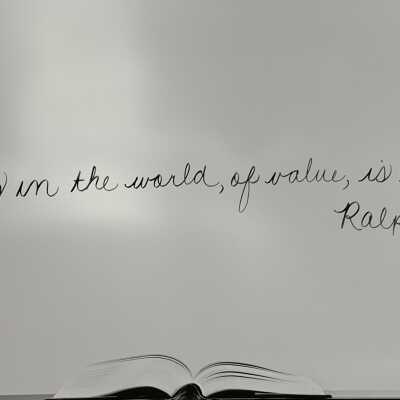 in the world, of value, is
Ral